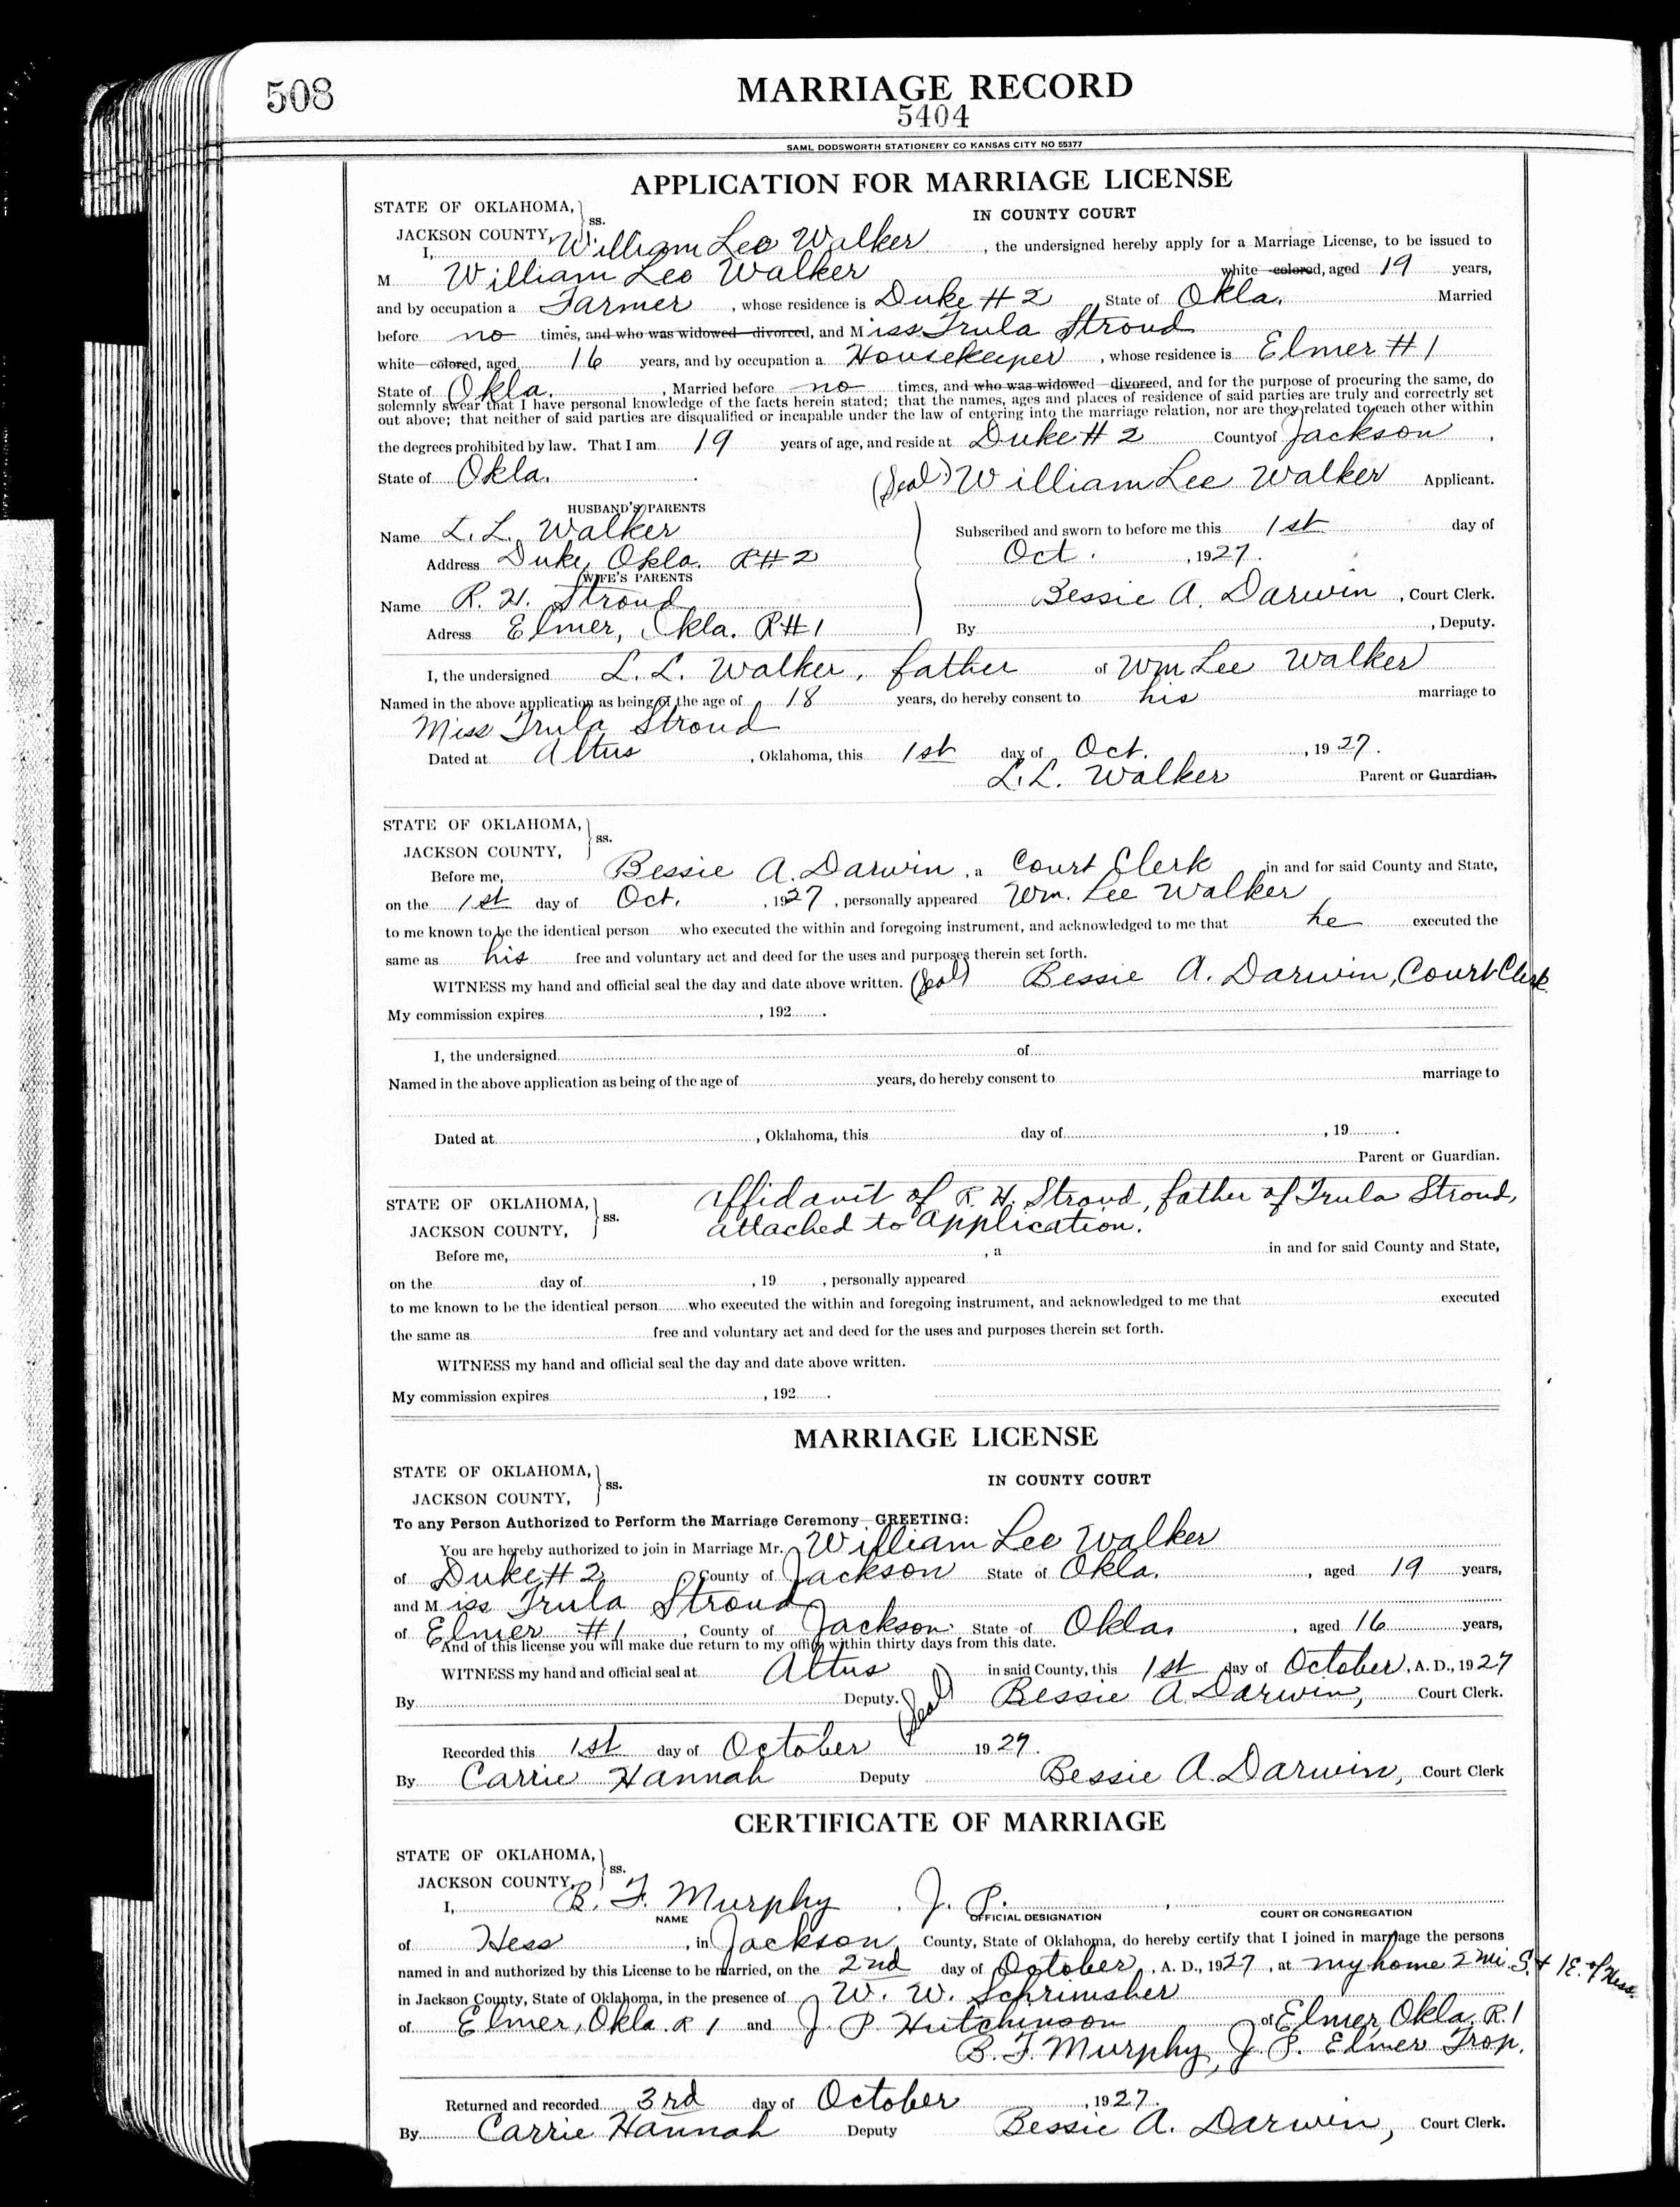 508
MARRIAGE RECORD
5404
SAML DODSWORTH STATIONERY CO KANSAS CITY NO 55377
APPLICATION FOR MARRIAGE LICENSE
STATE OF OKLAHOMA, ss. IN COUNTY COURT
JACKSON COUNTY,
I, William Leo Walker , the undersigned hereby apply for a Marriage License, to be issued to
M William Leo Walker white colored, aged 19 years,
and by occupation a Farmer , whose residence is Duke # 2 State of Okla. Married
before no times, and who was widowed divorced, and Miss Trula Stroud
white colored, aged 16 years, and by occupation a Housekeeper , whose residence is Elmer # 1
State of Okla. , Married before no times, and who was widowed divorced, and for the purpose of procuring the same, do
solemnly swear that I have personal knowledge of the facts herein stated; that the names, ages and places of residence of said parties are truly and correctly set
out above; that neither of said parties are disqualified or incapable under the law of entering into the marriage relation, nor are they related to each other within
the degrees prohibited by law. That I am 19 years of age, and reside at Duke # 2 County of Jackson ,
State of Okla. (Seal) William Lee Walker Applicant.
HUSBAND'S PARENTS
Name L. L. Walker Subscribed and sworn to before me this 1st day of
Address Duke, Okla. R#2 Oct. , 1927.
WIFE'S PARENTS
Name R. H. Stroud Bessie A. Darwin , Court Clerk.
Adress Elmer, Okla. R#1 By , Deputy.
I, the undersigned L. L. Walker, father of Wm Lee Walker
Named in the above application as being of the age of 18 years, do hereby consent to his marriage to
Miss Trula Stroud
Dated at Altus , Oklahoma, this 1st day of Oct. , 1927.
L. L. Walker Parent or Guardian.
STATE OF OKLAHOMA, ss.
JACKSON COUNTY,
Before me, Bessie A. Darwin , a Court Clerk in and for said County and State,
on the 1st day of Oct. , 1927 , personally appeared Wm. Lee Walker
to me known to be the identical person who executed the within and foregoing instrument, and acknowledged to me that he executed the
same as his free and voluntary act and deed for the uses and purposes therein set forth.
WITNESS my hand and official seal the day and date above written. (Seal) Bessie A. Darwin, Court Clerk
My commission expires , 192 .
I, the undersigned of
Named in the above application as being of the age of years, do hereby consent to marriage to
Dated at , Oklahoma, this day of , 19 .
Parent or Guardian.
STATE OF OKLAHOMA, ss. Affidavit of R. H. Stroud, father of Trula Stroud,
JACKSON COUNTY, attached to application.
Before me, , a in and for said County and State,
on the day of , 19 , personally appeared
to me known to be the identical person who executed the within and foregoing instrument, and acknowledged to me that executed
the same as free and voluntary act and deed for the uses and purposes therein set forth.
WITNESS my hand and official seal the day and date above written.
My commission expires , 192 .
MARRIAGE LICENSE
STATE OF OKLAHOMA, ss. IN COUNTY COURT
JACKSON COUNTY,
To any Person Authorized to Perform the Marriage Ceremony GREETING:
You are hereby authorized to join in Marriage Mr. William Lee Walker
of Duke # 2 County of Jackson State of Okla. , aged 19 years,
and Miss Trula Stroud
of Elmer #1 , County of Jackson State of Okla. , aged 16 years,
And of this license you will make due return to my office within thirty days from this date.
WITNESS my hand and official seal at Altus in said County, this 1st day of October , A. D., 1927
By Deputy. (Seal) Bessie A. Darwin, Court Clerk.
Recorded this 1st day of October 1927.
By Carrie Hannah Deputy Bessie A. Darwin, Court Clerk
CERTIFICATE OF MARRIAGE
STATE OF OKLAHOMA, ss.
JACKSON COUNTY,
I, B. F. Murphy , J. P. ,
NAME OFFICIAL DESIGNATION COURT OR CONGREGATION
of Hess , in Jackson County, State of Oklahoma, do hereby certify that I joined in marriage the persons
named in and authorized by this License to be married, on the 2nd day of October , A. D., 1927 , at my home 2 mi. S. & 1 E. of Hess
in Jackson County, State of Oklahoma, in the presence of W. W. Schrimsher
of Elmer, Okla. R 1 and J. P. Hutchinson of Elmer, Okla. R. 1
B. F. Murphy, J. P. Elmer Trop.
Returned and recorded 3rd day of October , 1927.
By Carrie Hannah Deputy Bessie A. Darwin, Court Clerk.